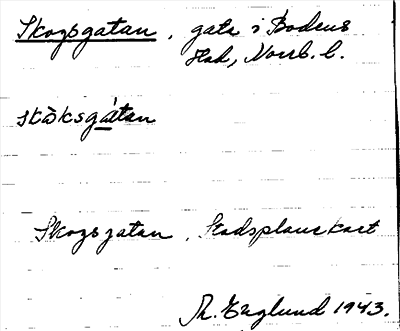 Skogsgatan, gata i Bodens
stad, Norrb. l.
skòksgátan
Skogsgatan, Stadsplanekart
Th. Englund 1943.